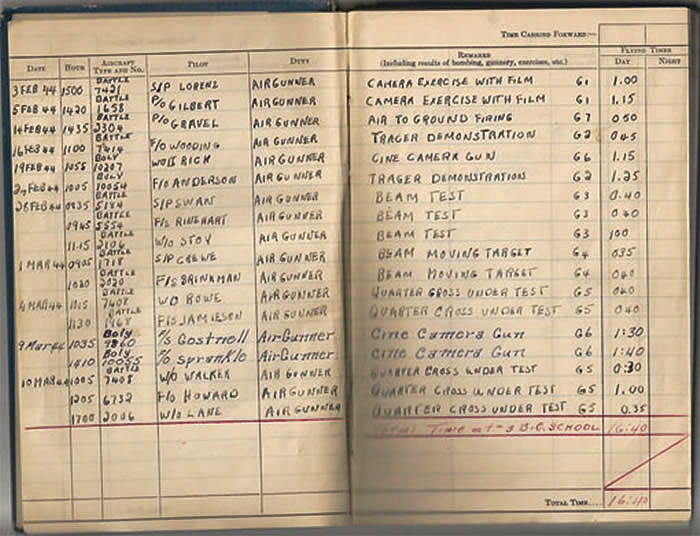 TIME CARRIED FORWARD:—
DATE HOUR AIRCRAFT TYPE AND NO. PILOT DUTY REMARKS (Including results of bombing, gunnery, exercises, etc.) FLYING TIMES DAY NIGHT
3 FEB 44 1500 BATTLE 7421 S/P LORENZ AIRGUNNER CAMERA EXERCISE WITH FILM G1 1.00
5 FEB 44 1420 BATTLE 1658 P/O GILBERT AIRGUNNER CAMERA EXERCISE WITH FILM G1 1.15
14 FEB 44 1435 BATTLE 2304 P/O GRAVEL AIRGUNNER AIR TO GROUND FIRING G7 050
16 FEB 44 1100 BATTLE 7414 F/O WOODING AIRGUNNER TRAGER DEMONSTRATION G2 045
19 FEB 44 1055 BOLY 10207 RICH AIRGUNNER CINE CAMERA GUN G6 1.15
24 FEB 44 1005 BOLY 10054 F/O ANDERSON AIRGUNNER TRAGER DEMONSTRATION G2 1.25
26 FEB 44 0835 BATTLE S/P SWAN AIRGUNNER BEAM TEST G3 0.40
0945 BATTLE 5554 F/S RINEHART AIRGUNNER BEAM TEST G3 040
11.15 BATTLE 2106 W/O STOY AIRGUNNER BEAM TEST G3 100
1 MAR 44 0905 BATTLE 1718 S/P CREWE AIRGUNNER BEAM MOVING TARGET G4 035
1020 BATTLE 2020 F/S BRINKMAN AIRGUNNER BEAM MOVING TARGET G4 040
4 MAR 44 1015 BATTLE 7408 WO ROWE AIRGUNNER QUARTER CROSS UNDER TEST G5 040
1130 BATTLE F/S JAMIESON AIRGUNNER QUARTER CROSS UNDER TEST G5 040
9 Mar 44 1035 Boly 9860 Costnell AirGunner Cine Camera Gun G6 1:30
1410 Boly 10055 AirGunner Cine Camera Gun G6 1:40
10 MAR 44 1005 BATTLE 7408 W/O WALKER AIRGUNNER QUARTER CROSS UNDER TEST G5 0:30
1205 6732 F/O HOWARD AIRGUNNER QUARTER CROSS UNDER TEST G5 1.00
1700 2006 W/O LANE AIRGUNNER QUARTER CROSS UNDER TEST G5 0.35
Total Time at 3 B+G SCHOOL 16:40
TOTAL TIME.... 16:40